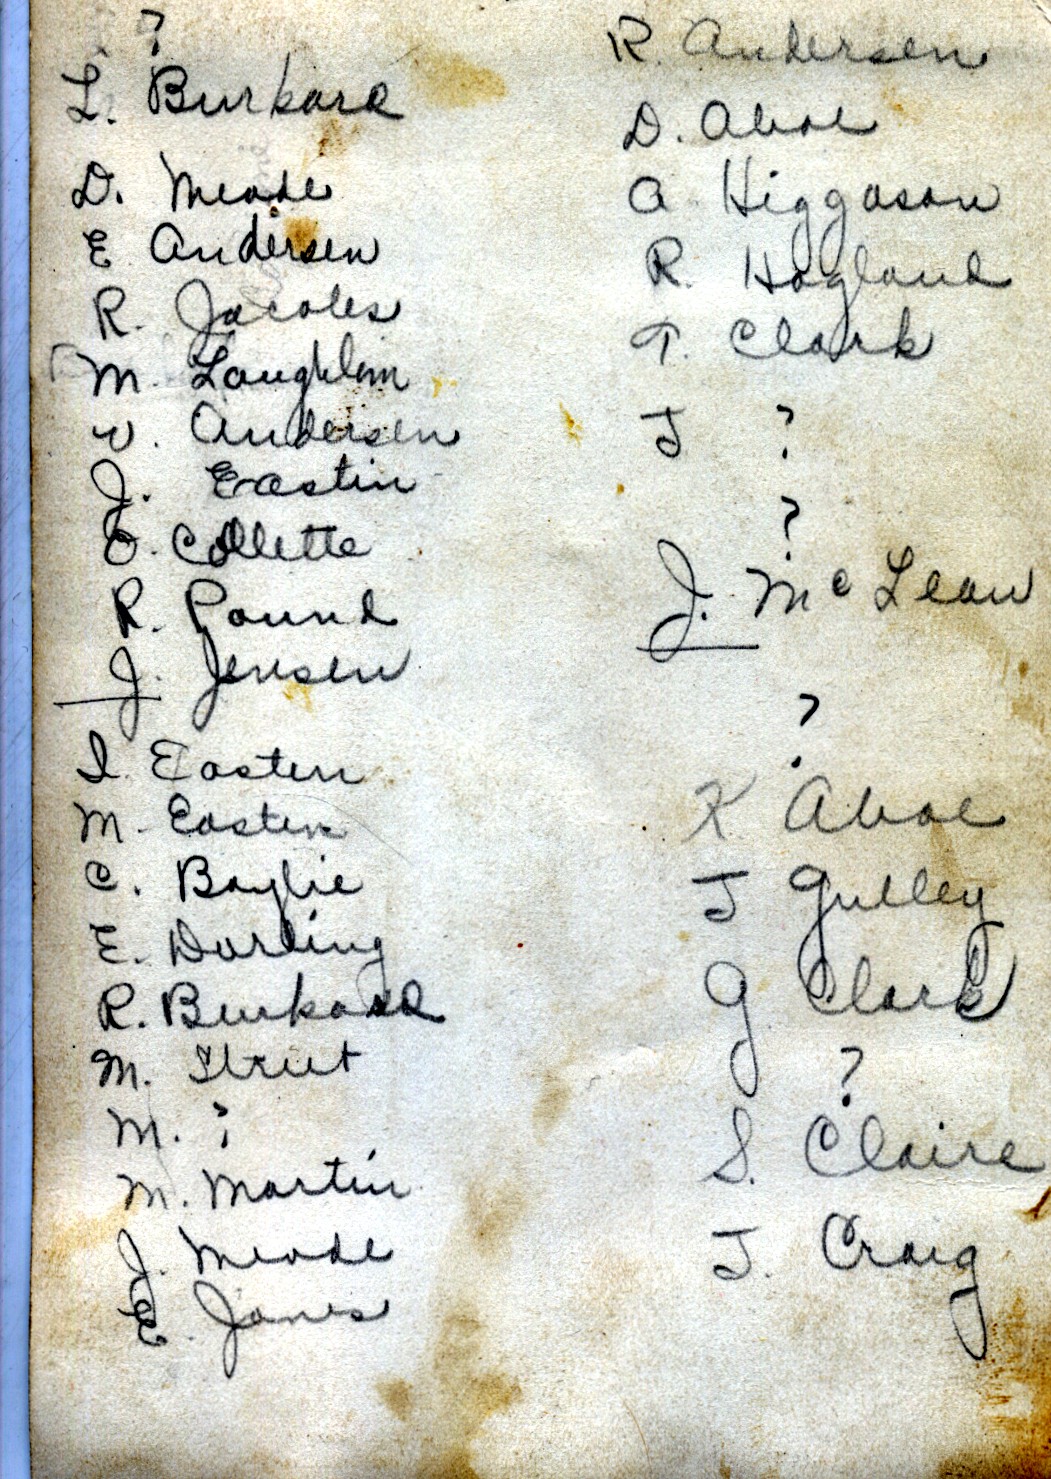 ?
L. Burkard
D. Meade
E Andersen
R. Jacobs
M. Laughlin
V. Andersen
J. Eastin
O. Collette
R. Pound
J. Jensen
I. Eastin
M. Eastin
C. Baylie
E. Darling
R. Burkard
M.
M. ?
M. Martin
J. Meade
E. Jones
R. Andersen
D.
A. Higgason
R. Hogland
T. Clark
J ?
?
J. Mc Lean
?
K
J Gulley
G Clark
?
S. Claire
J. Craig